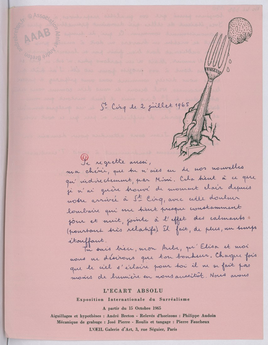 AAAB
St Cirq le 2 juillet 1965
Je regrette aussi,
ma chérie, que tu n'aies eu de nos nouvelles
qu'indirectement, par Mimi. Cela tient à ce que
je n'ai guère trouvé de moment clair depuis
notre arrivée à St Cirq, avec cette douleur
lombaire qui me tient presque constamment
jour et nuit, jointe à l'effet des calmants
(pourtant très relatif). Il fait, de plus, un temps
étouffant.
Tu sais bien, mon Aube, qu'Elisa et moi
nous ne désirons que ton bonheur. Chaque fois
que le ciel s'éclaire pour toi il se fait par
moins de lumière en mouvementité. Nous nous
L'ECART ABSOLU
Exposition Internationale du Surréalisme
A partir du 15 Octobre 1965
Aiguillages et hypothèses : André Breton - Relevés d'horizons : Philippe Audoin
Mécanique de grainage : José Pierre - Roulis et tangage : Pierre Faucheux
L'ŒIL Galerie d'Art, 3, rue Séguier, Paris